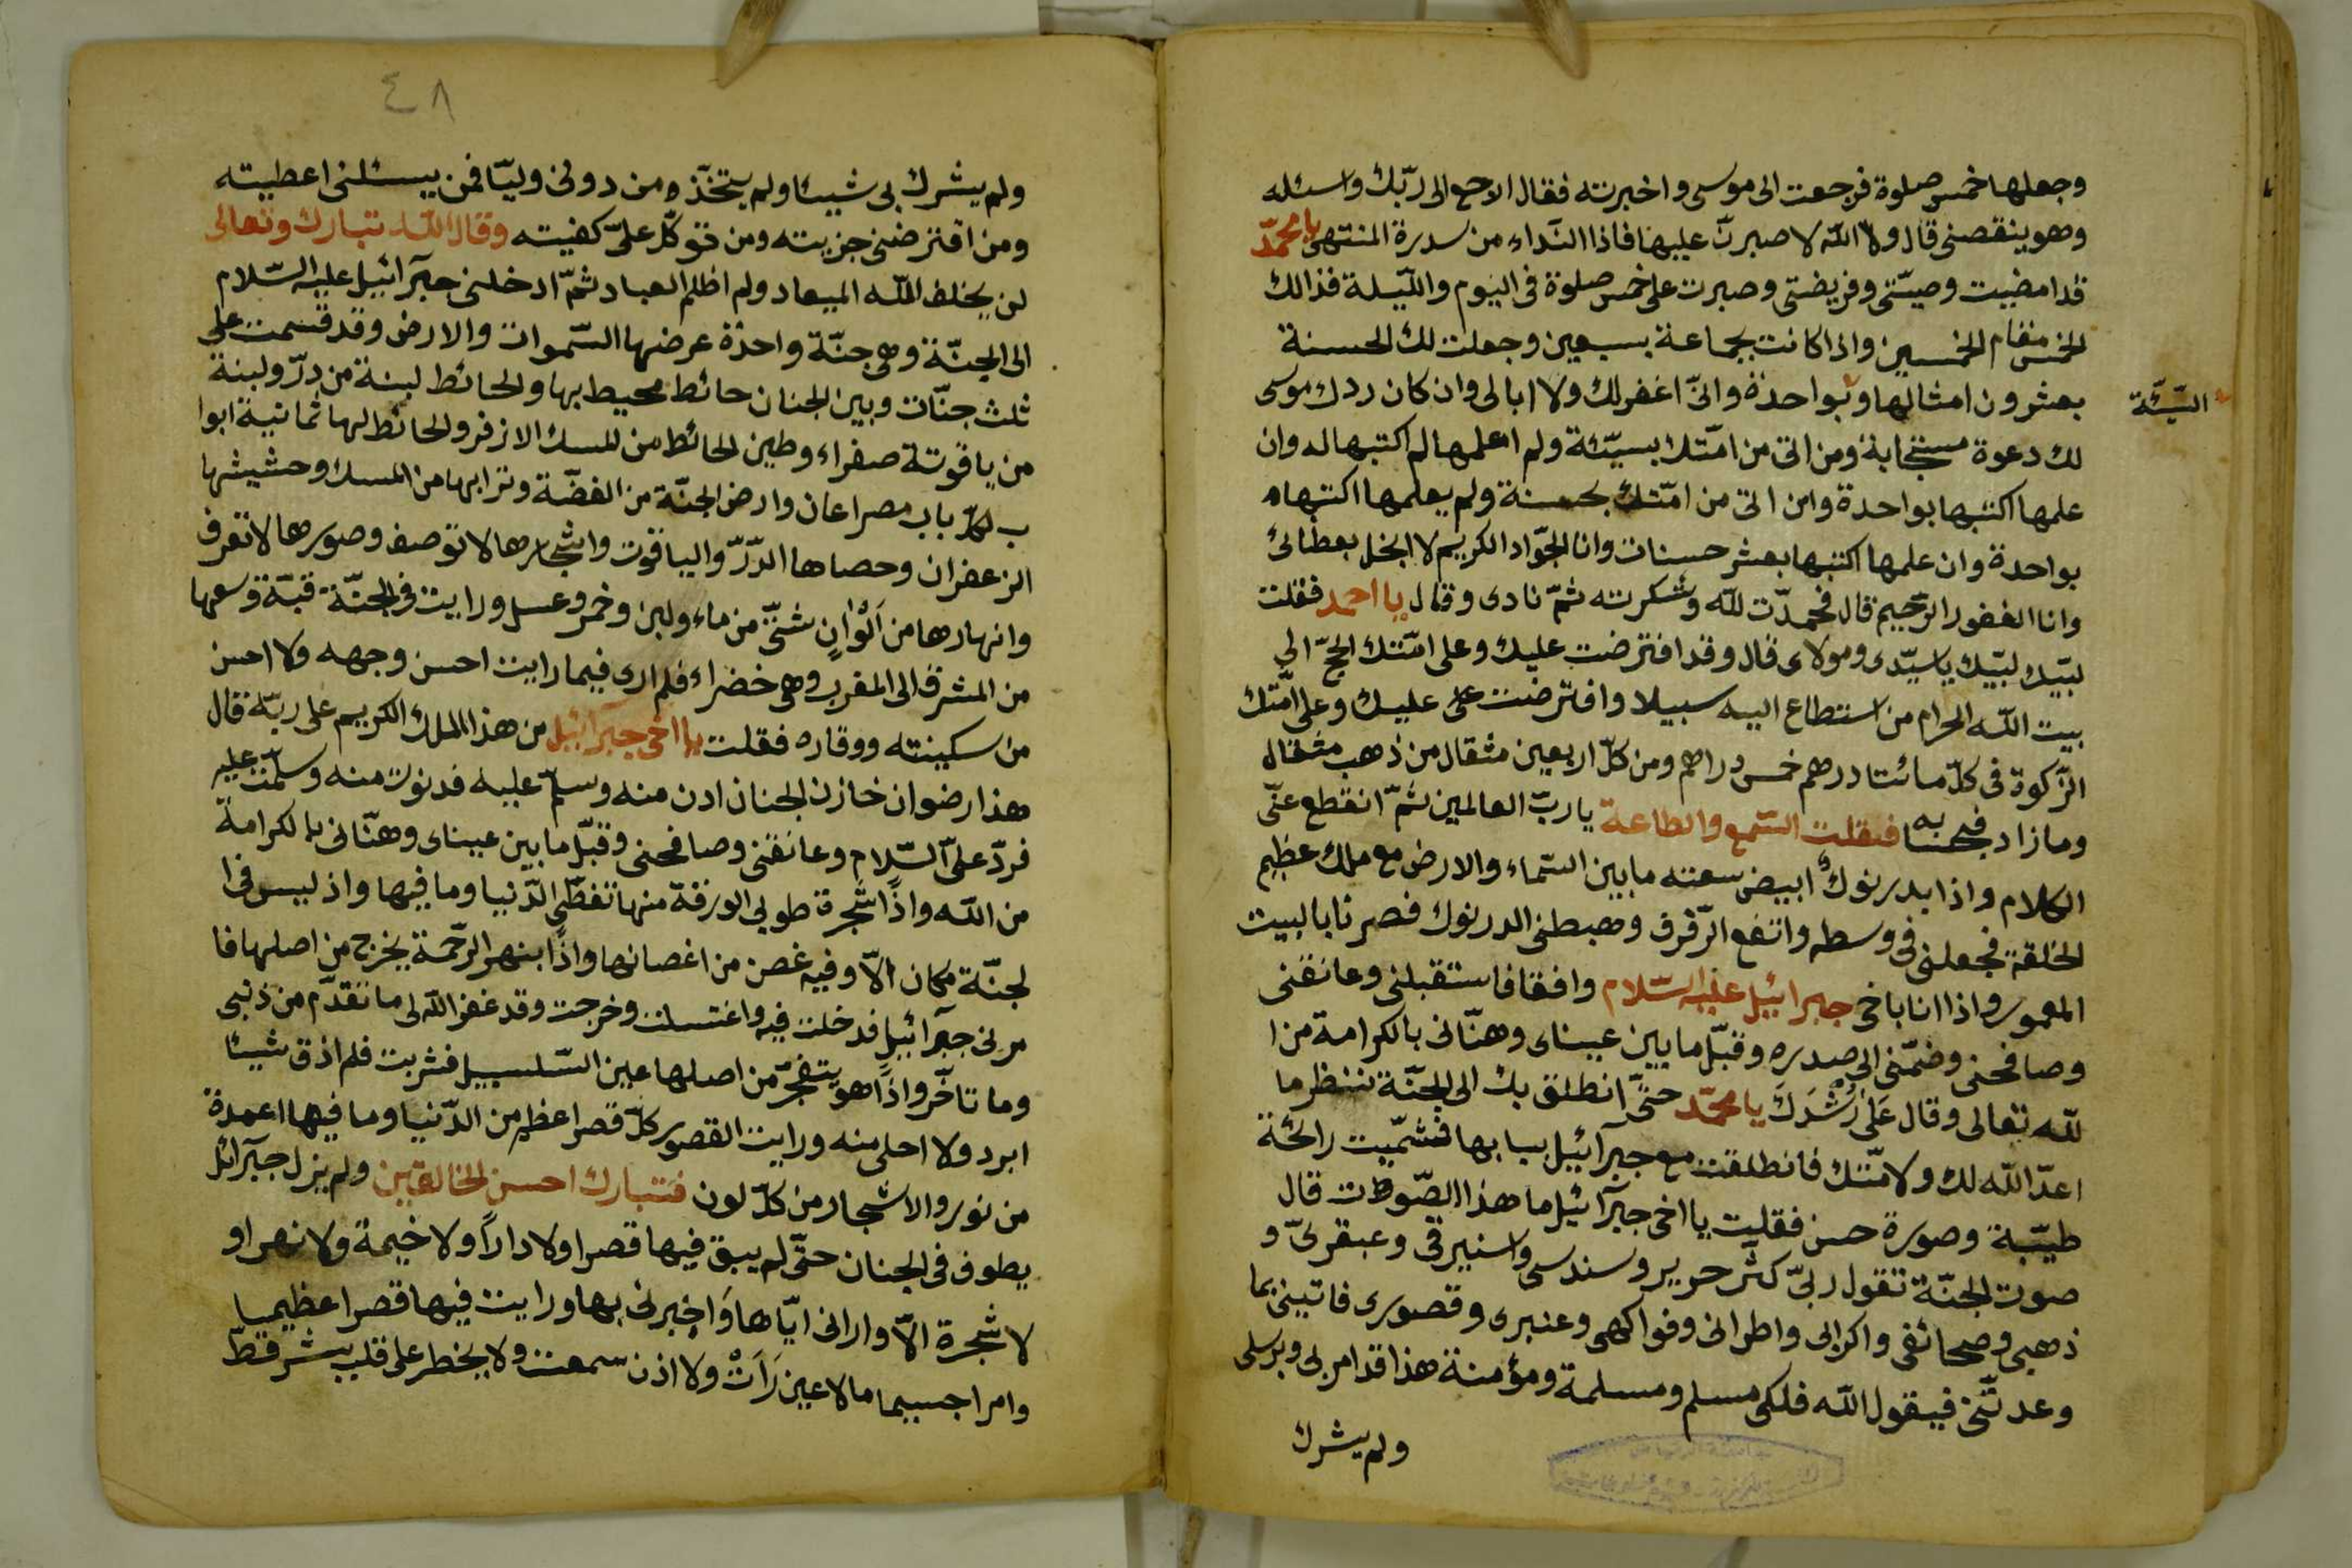 وجعلها خمس صلوة فرجعت الى موسى واخبرته فقال ارجع الى ربّك واسئله
وهو ينقصنى قال ولا الله لاصبرنّ عليها فاذا النّداء من سدرة المنتهى يا محمّد
قد امضيت وصيّتى وفريضتى وصبرت على خمس صلوة فى اليوم واللّيلة فذالك
الخمس مقام الخمسين واذا كانت بجماعة بسبعين وجعلت لك الحسنة
بعشرون امثالها و بواحدة وانّى اغفر لك ولا ابالى وان كان ردك موسى
السّيّئة
لك دعوة مستجابة ومن اتى من امّتك بسيّئة ولم اعلمها لم اكتبها له وان
علمها اكتبها بواحدة وان اتى من امّتك بحسنة ولم يعلمها اكتبها
بواحدة وان علمها اكتبها بعشر حسنات وانا الجوّاد الكريم لا ابخل بعطائى
وانا الغفور الرّحيم قال فحمدّت للّه وشكرته ثمّ نادى وقال يا احمد فقلت
لبّيك لبّيك يا سيّدى ومولاى قال وقد افترضت عليك وعلى امّتك الحجّ الى
بيت اللّه الحرام من استطاع اليه سبيلا وافترضت عليك وعلى امّتك
الزّكوة فى كلّ مائتا درهم خمس دراهم ومن كلّ اربعين مثقال من ذهب مثقال
وما زاد فبحسابه فقلت السّمع والطاعة يا ربّ العالمين ثمّ انقطع عنّى
الكلام واذا بدرنوك ابيض سعته ما بين السّماء والارض مع ملك عظيم
الخلقة فجعلنى فى وسطه واتفع الرّفرف وهبطنى الدرنوك فصرنا بالبيت
المعمور واذا انا باخى جبرائيل عليه السّلام وافقا فاستقبلنى وعانقنى
وصافحنى وضمّنى الى صدره وقبّل ما بين عيناى وهنّانى بالكرامة من ا
للّه تعالى وقال على رشدك يا محمّد حتّى انطلق بك الى الجنّة تنظر ما
اعدّ اللّه لك ولامّتك فانطلقت مع جبرآئيل ببابها فشمّيت رائحة
طيّبة وصورة حسن فقلت يا اخى جبرآئيل ما هذا الصّوت قال
صوت الجنّة تقول ربّى كثّر حرير وسندسى واستبرقى وعبقرىّ و
ذهبى وصحائفى واكرابى واطرانى وفواكهى وعنبرى وقصورى فاتينى بما
وعدتّنى فيقول اللّه فلكى مسلم ومسلمة ومؤمنة هذا قد امر بى وبرسلى
ولم يشرك
٤٨
ولم يشرك بى شيئا ولم يتخذه من دونى وليّا فمن يسئلنى اعطيته
ومن اقترضنى جزيته ومن توكّل علىّ كفيته وقال اللّه تبارك وتعالى
لن يخلف اللّه الميعاد ولم اظلم العباد ثمّ ادخلنى جبرآئيل عليه السّلام
الى الجنّة وهى جنّة واحدة عرضها السّموات والارض وقد قسمت على
ثلث جنّات وبين الجنان حائط محيط بها والحائط لبنة من درّ ولبنة
من ياقوتة صفراء وطين الحائط من المسك الازفر والحائط لها ثمانية ابوا
ب لكلّ باب مصراعان وارض الجنّة من الفضّة وترابها من المسك وحشيشها
الزعفران وحصاها الدّرّ والياقوت واشجارها لا توصف وصورها لا تعرف
وانهارها من اَلْوٰانٍ شتّى من ماء ولبن وخمر وعسل ورايت فى الجنّة قبّة وسعها
من المشرق الى المغرب وهى خضراء فلم ارى فيما رايت احسن وجهه ولا احسن
من سكينته ووقاره فقلت يا اخى جبرآئيل من هذا الملك الكريم على ربّه قال
هذا رضوان خازن الجنان ادن منه وسلّم عليه فدنوت منه وسلّمت عليه
فردّ علىّ السّلام وعانقنى وصافحنى وقبّل ما بين عيناى وهنّانى بالكرامة
من اللّه واذًا شّجرة طوبى الورقة منها تغطّى الدّنيا وما فيها واذ ليس فى ا
لجنّة مكان الّا وفيه غصن من اغصانها واذًا بنهر الرّحمة يخرج من اصلها فا
مرنى جبرآئيل فدخلت فيه واغتسلت وخرجت وقد غفر اللّه لى ما تقدّم من ذنبى
وما تاخّر واذًا هو يتفجرّ من اصلها عين السّلسبيل فشربت فلم اذق شيئا
ابرد ولا احلى منه ورايت القصور كلّ قصر اعظم من الدّنيا وما فيها اعمدة
من نور والاشجار من كلّ لون فتبارك احسن الخالقين ولم يزل جبرآئل
يطوف فى الجنان حتّى لم يبق فيها قصرا ولا داراً ولا خيمة ولا نهرا و
لا شجرة الّا وارانى ايّاها وَاخبرنى بها ورايت فيها قصرا عظيما
وامرا جسيما ما لا عين رَاَتْ ولا اذن سمعت ولا يخطر على قلب بشر قطّ